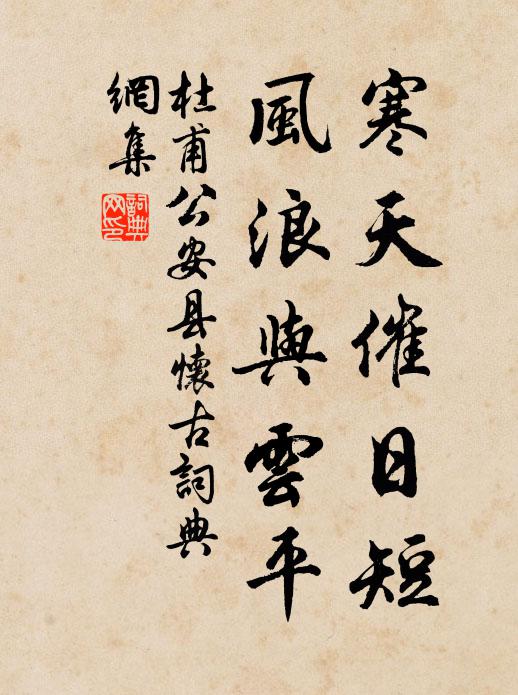 寒天催日短
風浪與雲平
杜甫公安县懷古詞典
網集
詞典網印